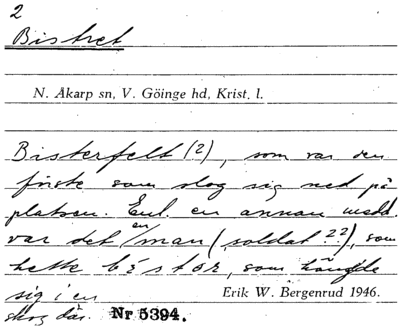 2
Bistret
N. Åkarp sn, V. Göinge hd, Krist. l.
Bisterfelt (2), som var den
förste som slog sig ned på
platsen. Enl. en annan medd.
var det en man (soldat ??), som
hette bístər, som hängde
sig i en
skog där.
Erik W. Bergenrud 1946.
Nr 5394.